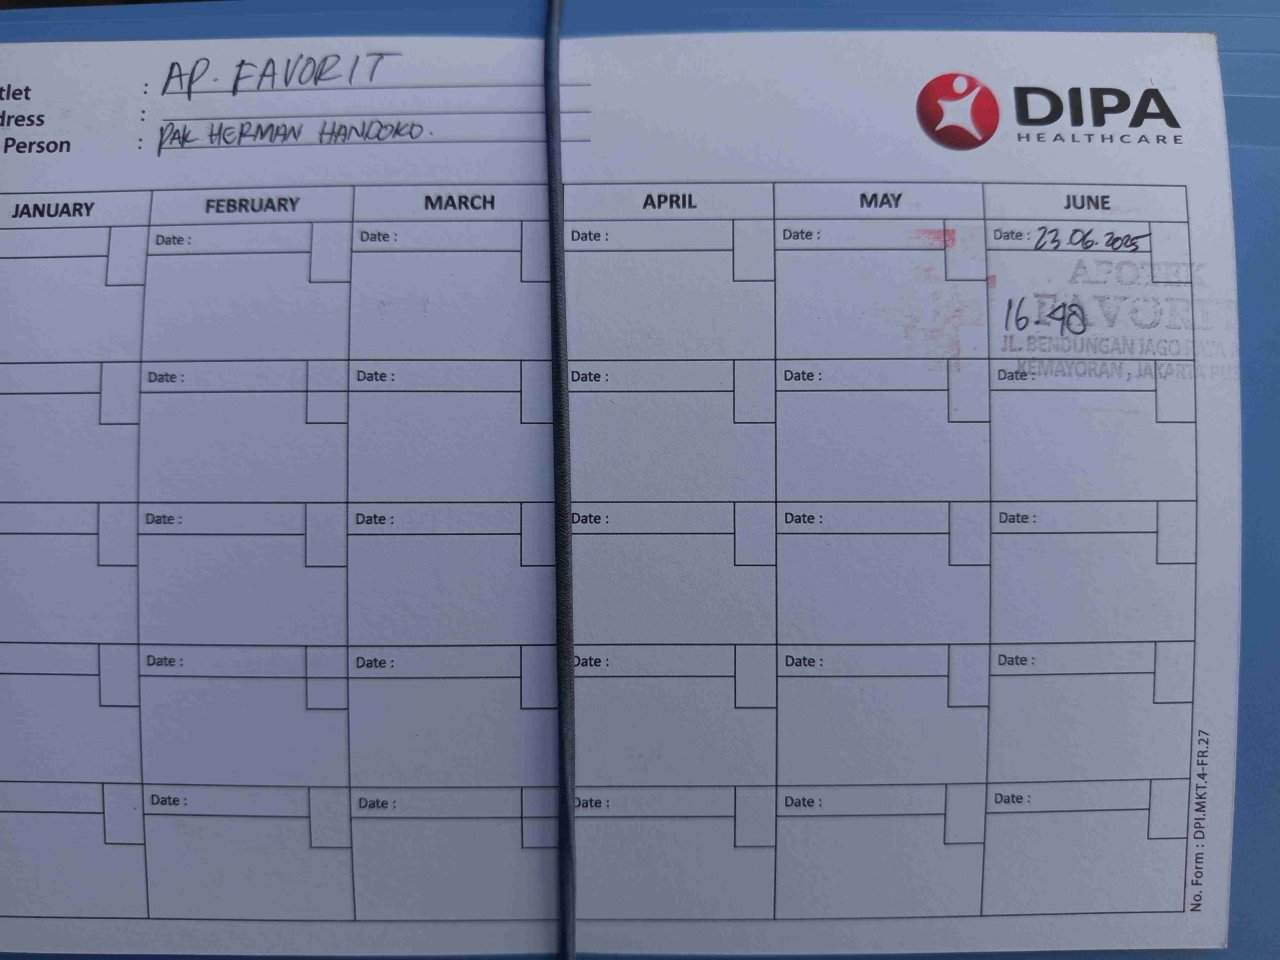 tlet : AP. FAVORIT
dress :
Person : PAK HERMAN HANDOKO.
DIPA
HEALTHCARE
JANUARY FEBRUARY MARCH APRIL MAY JUNE
Date : Date : Date : Date : Date : 23.06.2025
APOTEK
FAVORIT
16.48
JL. BENDUNGAN JAGO RAYA
KEMAYORAN, JAKARTA
Date : Date : Date : Date : Date :
Date : Date : Date : Date : Date :
Date : Date : Date : Date : Date :
Date : Date : Date : Date : Date :
No. Form : DPI.MKT.4-FR.27